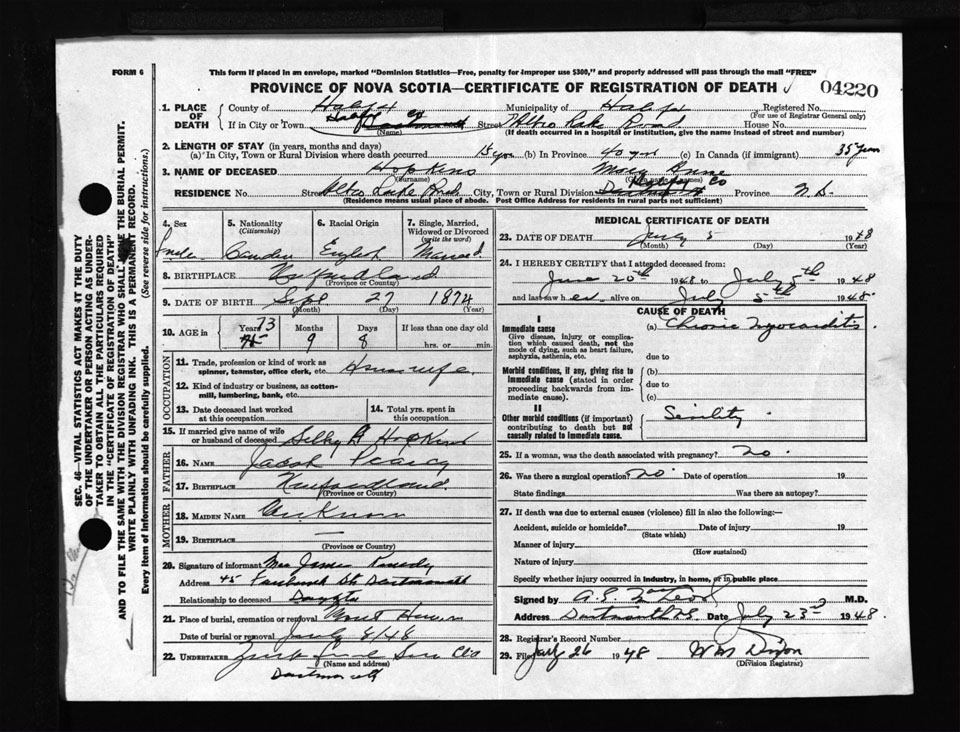 FORM 6
This form if placed in an envelope, marked "Dominion Statistics—Free, penalty for improper use $300," and properly addressed will pass through the mail "FREE"
PROVINCE OF NOVA SCOTIA—CERTIFICATE OF REGISTRATION OF DEATH
04220
1. PLACE OF DEATH
County of Halifax Municipality of Halifax Registered No.
(For use of Registrar General only)
If in City or Town Halifax Co Dartmouth Street Albro Lake Road House No.
(Name) (If death occurred in a hospital or institution, give the name instead of street and number)
2. LENGTH OF STAY (in years, months and days)
(a) In City, Town or Rural Division where death occurred 15 yrs (b) In Province 40 yrs (c) In Canada (if immigrant) 35 years
3. NAME OF DECEASED Hopkins Mary Anne
(Surname) (Given names)
RESIDENCE No. Street Albro Lake Road City, Town or Rural Division Dartmouth Halifax Co Province N.S.
(Residence means usual place of abode. Post Office Address for residents in rural parts not sufficient)
4. Sex
5. Nationality (Citizenship)
6. Racial Origin
7. Single, Married, Widowed or Divorced (write the word)
English Married
8. BIRTHPLACE Newfoundland
(Province or Country)
9. DATE OF BIRTH Sept 27 1874
(Month) (Day) (Year)
10. AGE in Years Months Days If less than one day old
73 75 9 8 hrs. or min.
OCCUPATION
11. Trade, profession or kind of work as spinner, teamster, office clerk, etc. Housewife
12. Kind of industry or business, as cotton-mill, lumbering, bank, etc.
13. Date deceased last worked at this occupation
14. Total yrs. spent in this occupation
15. If married give name of wife or husband of deceased Hopkins
FATHER
16. NAME Jacob Piercy
17. BIRTHPLACE Newfoundland
(Province or Country)
MOTHER
18. MAIDEN NAME Unknown
19. BIRTHPLACE —
(Province or Country)
20. Signature of informant Mrs James Kennedy
Address 45 St Dartmouth
Relationship to deceased Daughter
21. Place of burial, cremation or removal Mount Hermon
Date of burial or removal July 8/48
22. UNDERTAKER
(Name and address)
Dartmouth
MEDICAL CERTIFICATE OF DEATH
23. DATE OF DEATH July 5 1948
(Month) (Day) (Year)
24. I HEREBY CERTIFY that I attended deceased from:
June 20th 1948 to July 5th 1948
and last saw her alive on July 5th 1948.
CAUSE OF DEATH
I
Immediate cause (a) Chronic Myocarditis
Give disease, injury or complication which caused death, not the mode of dying, such as heart failure, asphyxia, asthenia, etc.
due to
Morbid conditions, if any, giving rise to immediate cause (stated in order proceeding backwards from immediate cause).
(b)
due to
(c)
II
Other morbid conditions (if important) contributing to death but not causally related to immediate cause.
Senility
25. If a woman, was the death associated with pregnancy? no
26. Was there a surgical operation? no Date of operation 19
State findings Was there an autopsy?
27. If death was due to external causes (violence) fill in also the following:—
Accident, suicide or homicide? Date of injury 19
(State which)
Manner of injury
(How sustained)
Nature of injury
Specify whether injury occurred in industry, in home, or in public place
Signed by A.S. McLeod M.D.
Address Dartmouth N.S. Date July 23rd 1948
28. Registrar's Record Number
29. Filed July 26 1948 W M Dixon
(Division Registrar)
SEC. 46—VITAL STATISTICS ACT MAKES IT THE DUTY OF THE UNDERTAKER OR PERSON ACTING AS UNDERTAKER TO OBTAIN ALL THE PARTICULARS REQUIRED IN THE "CERTIFICATE OF REGISTRATION OF DEATH" AND TO FILE THE SAME WITH THE DIVISION REGISTRAR WHO SHALL ISSUE THE BURIAL PERMIT.
WRITE PLAINLY WITH UNFADING INK. THIS IS A PERMANENT RECORD.
Every item of Information should be carefully supplied. (See reverse side for instructions.)